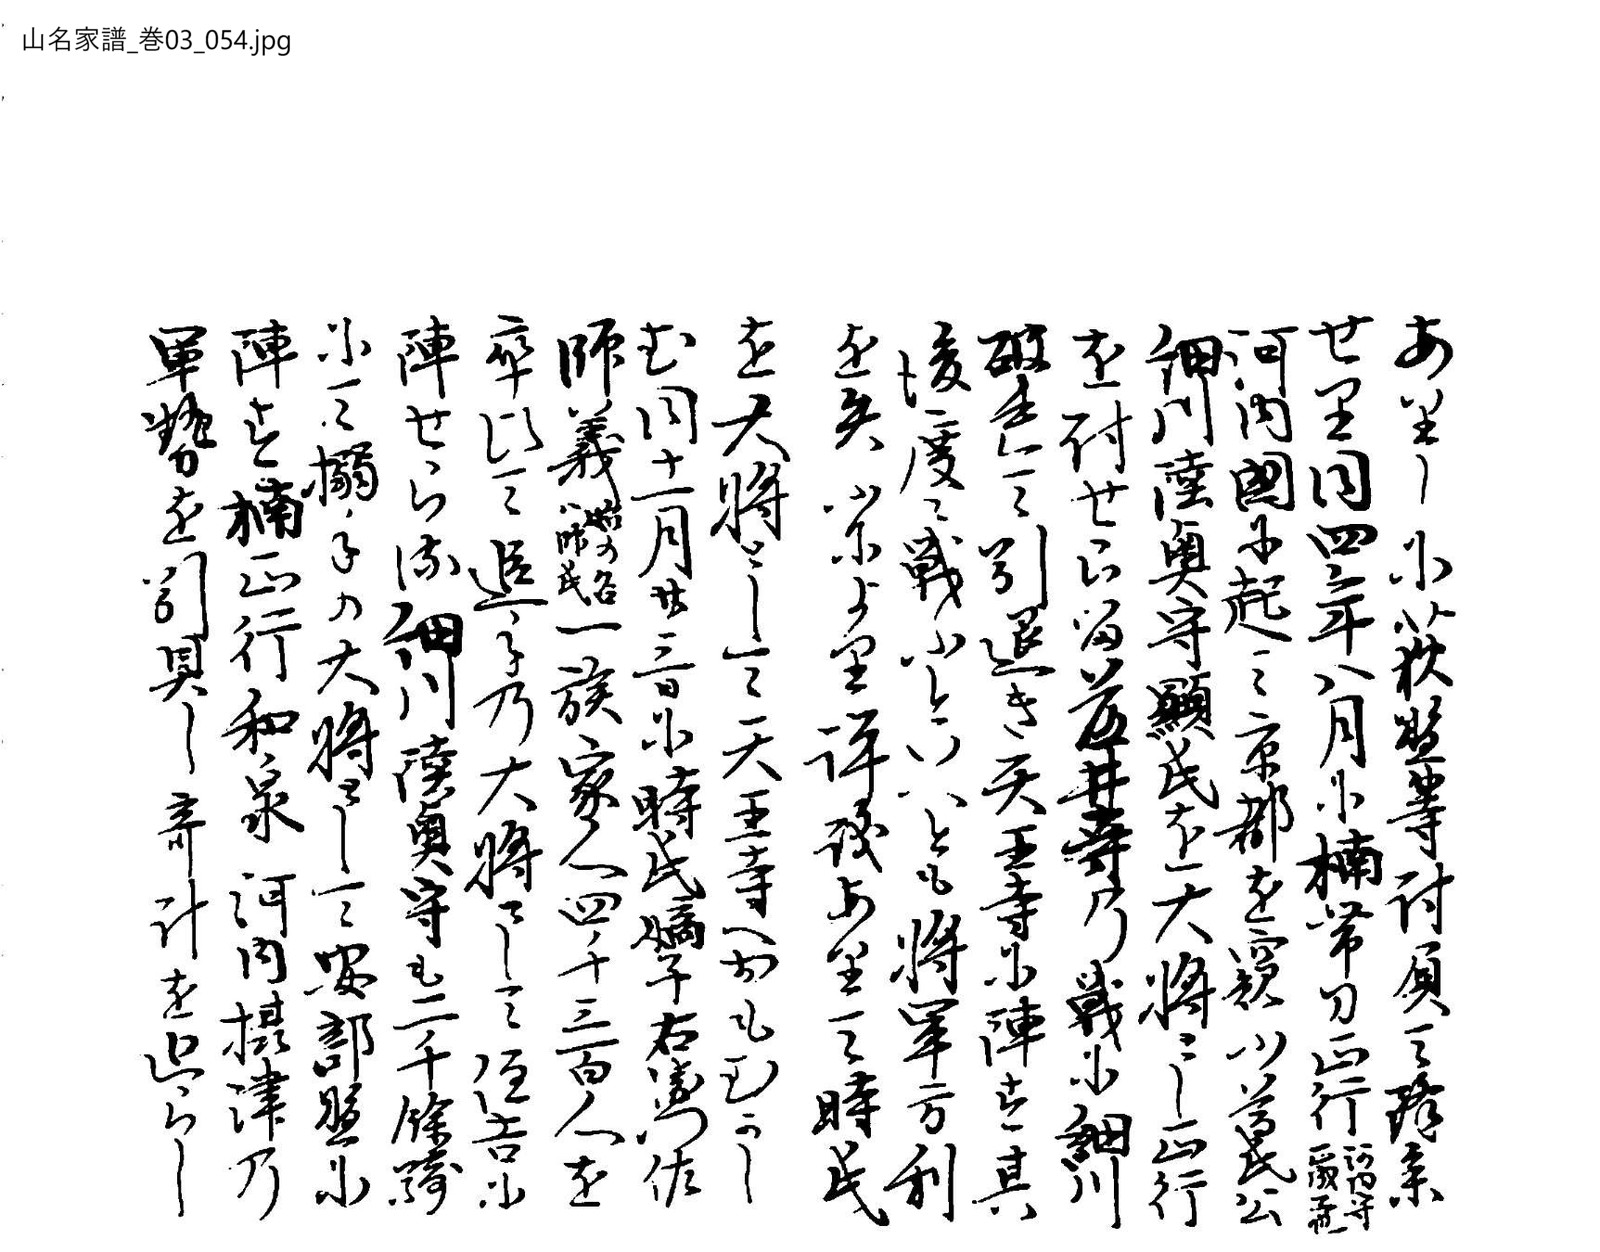 山名家譜_巻03_054.jpg
ありしに荻野等討負て降参
せり同四年八月に楠帯刀正行河内守正成子也
河内國に起て京都を窺ふ尊氏公
細川陸奥守顕氏を大将として正行
を討せらる藤井寺乃戦に細川
破れて引退き天王寺に陣す其
後度々戦ふといへとも将軍方利
を失ふ
時氏
を大将として天王寺へおもむかし
む同十一月廿三日に時氏嫡子右衛門佐
師義始の名ハ師氏一族家人四千三百人を
率して追手乃大将として住吉に
陣せらる細川陸奥守も二千餘騎
にて搦手の大将として安部野に
陣す楠正行和泉河内摂津乃
軍勢を引具し